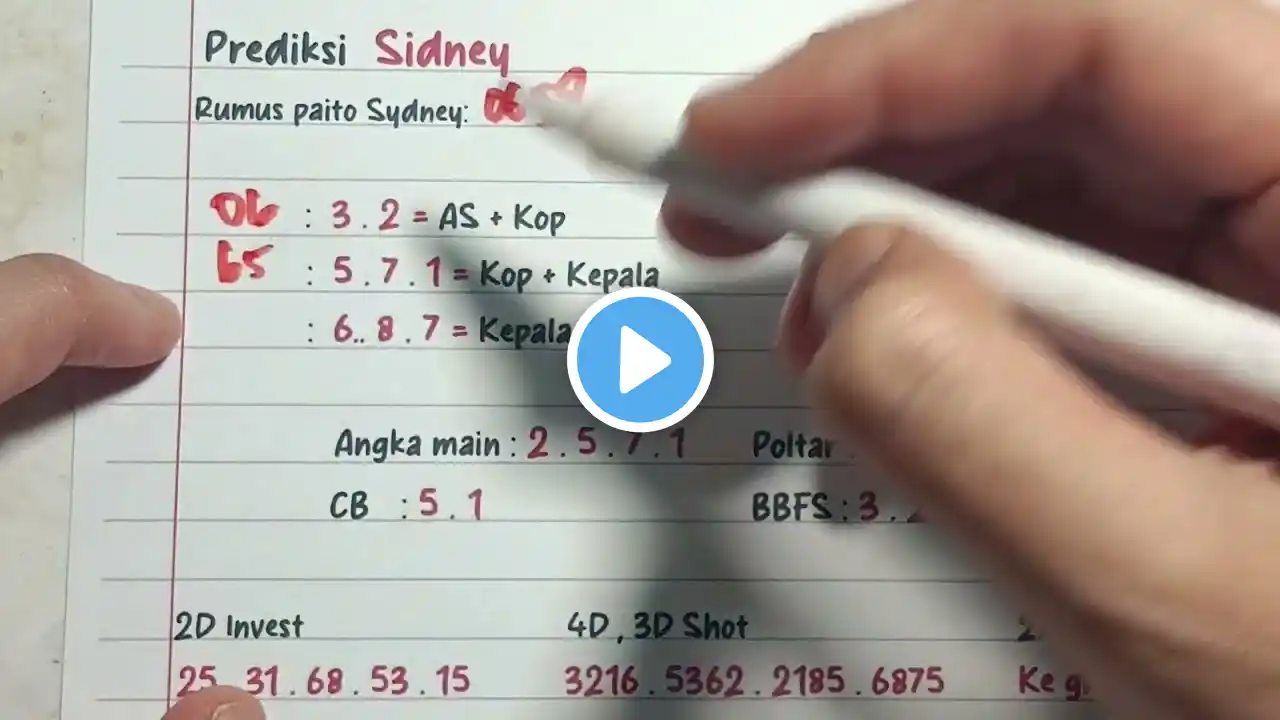 Prediksi Sidney
Rumus paito Sydney: 06
06 : 3 . 2 = AS + Kop
65 : 5 . 7 . 1 = Kop + Kepala
: 6.. 8 . 7 = Kepala
Angka main : 2 . 5 . 7 . 1 Poltar
CB : 5 . 1 BBFS : 3 . 2
2D Invest 4D , 3D Shot
25 . 31 . 68 . 53 . 15 3216 . 5362 . 2185 . 6875 Ke